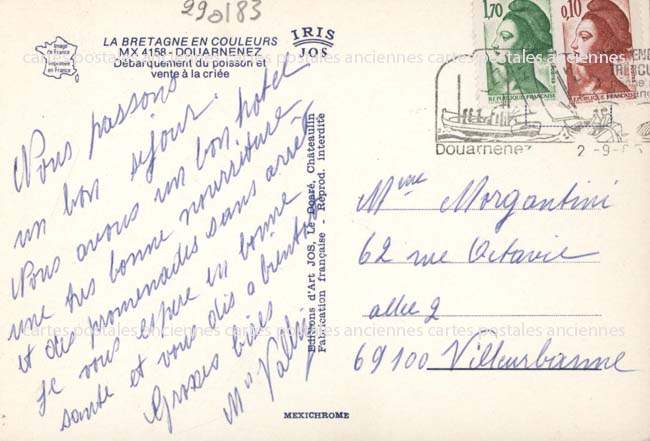 29 0/83
LA BRETAGNE EN COULEURS
MX 4158 - DOUARNENEZ
Débarquement du poisson et
vente à la criée
Image de France
Imprimée en France
IRIS
JOS
1,70
0,10
REPUBLIQUE FRANÇAISE
REPUBLIQUE FRANÇAISE
Douarnenez
2 -9-
Nous passons
un bon séjour.
Nous avons un bon hotel
une très bonne nourriture
et des promenades sans arrêt
Je vous espère en bonne
santé et vous dis a bientôt
Grosses bises
Editions d'Art JOS, Le Doaré, Châteaulin
Fabrication française - Reprod. interdite
Mme Morgantini
62 rue Octavie
allée 2
69100 Villeurbanne
cartes postales anciennes cartes postales anciennes cartes postales anciennes
MEXICHROME